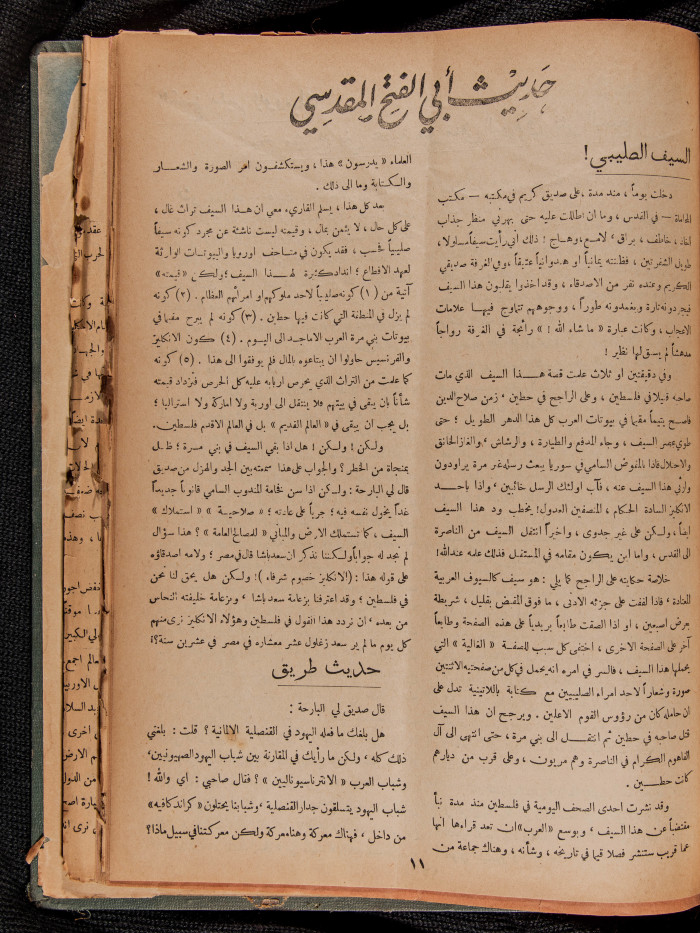 حديث أبي الفتح المقدسي
السيف الصليبي !
دخلت يوماً ، منذ مدة ، على صديق كريم في مكتبه — مكتب
المحاماة — في القدس ، وما ان اطللت عليه حتى بهرني منظر جذاب
اخاذ ، خاطف ، براق ، لامع ، وهاج : ذلك اني رأيت سيفاً مسلولا ،
طويل الشفرتين ، فظننته يمانياً او هندوانياً عتيقاً ، وفي الغرفة صديقي
الكريم وعنده نفر من الاصدقاء ، وقد اخذوا يقلبون هذا السيف
فيجردونه تارة ويغمدونه طوراً ، ووجوههم تتماوج فيها علامات
الاعجاب ، وكانت عبارة « ما شاء الله ! » رائجة في الغرفة رواجاً
مدهشاً لم يسبق لها نظير !
وفي دقيقتين او ثلاث علمت قصة هذا السيف الذي مات
صاحبه قتيلا في فلسطين ، وعلى الراجح في حطين ، زمن صلاح الدين
فاصبح يتيماً مقيما في بيوتات العرب كل هذا الدهر الطويل ؛ حتى
طوي عصر السيف ، وجاء المدفع والطيارة ، والرشاش ، والغاز الخانق
والاحتلال فاذا بالمفوض السامي في سوريا يبعث رسله غير مرة يراودون
وارثي هذا السيف عنه ، فآب اولئك الرسل خائبين ، واذا باحد
الانكليز السادة الحكام ، المنصفين العدول ! يخطب ود هذا السيف
ايضاً ، ولكن على غير جدوى ، واخيراً انتقل السيف من الناصرة
الى القدس ، واما اين يكون مقامه في المستقبل فذلك علمه عند الله !
خلاصة حكايته على الراجح كما يلي : هو سيف كالسيوف العربية
المعتادة ، فاذا لففت على جزئه الادنى ، ما فوق المقبض بقليل ، شريطة
بعرض اصبعين ، او اذا الصقت طابعاً بريدياً على هذه الصفحة وطابعاً
آخر على الصفحة الاخرى ، اختفى كل سبب للصفة « الغالية » التي
يحملها هذا السيف ، فالسر في امره انه يحمل في كل من صفحتيه الاثنتين
صورة وشعاراً لاحد امراء الصليبيين مع كتابة باللاتينية تدل على
ان حامله كان من رؤوس القوم الاعلين . ويرجح ان هذا السيف
قتل صاحبه في حطين ثم انتقل الى بني مرة ، حتى انتهى الى آل
الفاهوم الكرام في الناصرة وهم مريون ، وعلى قرب من ديارهم
كانت حطين .
وقد نشرت احدى الصحف اليومية في فلسطين منذ مدة نبأ
مقتضباً عن هذا السيف ، وبوسع « العرب » ان تعد قراءها انها
عما قريب ستنشر فصلا قيما في تاريخه ، وشأنه ، وهناك جماعة من
العلماء « يدرسون » هذا ، ويستكشفون امر الصورة والشعار
والكتابة وما الى ذلك .
بعد كل هذا ، يسلم القاريء معي ان هذا السيف تراث غال ،
على كل حال ، لا يثمن بمال ، وقيمته ليست ناشئة عن مجرد كونه سيفاً
صليبياً فحسب ، فقد يكون في متاحف اوروبا والبيوتات الوارثة
لعهد الاقطاع ؛ انداد كثيرة لهذا السيف ؛ ولكن « قيمته »
آتية من ( ١ ) كونه صليبياً لاحد ملوكهم او امرائهم العظام . ( ٢ ) كونه
لم يزل في المنطقة التي كانت فيها حطين . ( ٣ ) كونه لم يبرح مقيما في
بيوتات بني مرة العرب الاماجد الى اليوم . ( ٤ ) كون الانكليز
والفرنسيس حاولوا ان يبتاعوه بالمال فلم يوفقوا الى هذا . ( ٥ ) كونه
كما علمت من التراث الذي يحرص اربابه عليه كل الحرص فيزداد قيمته
شأناً بان يبقى في بيتهم فلا ينتقل الى اوربة ولا اماركة ولا استراليا ؛
بل يجب ان يبقى في « العالم القديم » بل في العالم الاقدم فلسطين .
ولكن ! ولكن ! هل اذا بقي السيف في بني مرة ؛ ظل
بمنجاة من الخطر ؟ والجواب على هذا تتمته بين الجد والهزل من صديق
قال لي البارحة : ولكن اذا سن فخامة المندوب السامي قانوناً جديداً
غداً يخول نفسه فيه ؛ جرياً على عادته ؛ « صلاحية » « استملاك »
السيف ، كما تستملك الارض والمباني « للصالح العامة » ؟ هذا سؤال
لم نجد له جواباً ولكننا نذكر ان سعد باشا قال في مصر ؛ ولامه اصدقاؤه
على قوله هذا : ( الانكليز خصوم شرفاء ) ؛ ولكن هل يحق لنا نحن
في فلسطين ؛ وقد اعترفنا بزعامة سعد باشا ، وبزعامة خليفته النحاس
من بعده ، ان نردد هذا القول في فلسطين وهؤلاء الانكليز نرى منهم
كل يوم ما لم ير سعد زغلول عشر معشاره في مصر في عشرين سنة ؟ !
حديث طريق
قال صديق لي البارحة :
هل بلغك ما فعله اليهود في القنصلية الالمانية ؟ قلت : بلغني
ذلك كله ، ولكن ما رأيك في المقارنة بين شباب اليهود الصهيونيين ،
وشباب العرب « الانترناسيوناليين » ؟ فقال صاحبي : اي والله !
شباب اليهود يتسلقون جدار القنصلية ، وشبابنا يحتلون « كراند كافيه »
من داخل ، فهناك معركة وهنا معركة ولكن معركتنا في سبيل ماذا ؟
١١